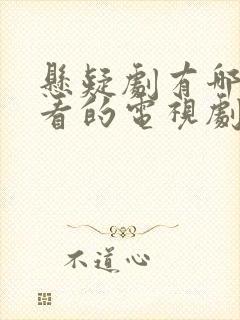 懸疑劇有哪
看的電視劇
不道心